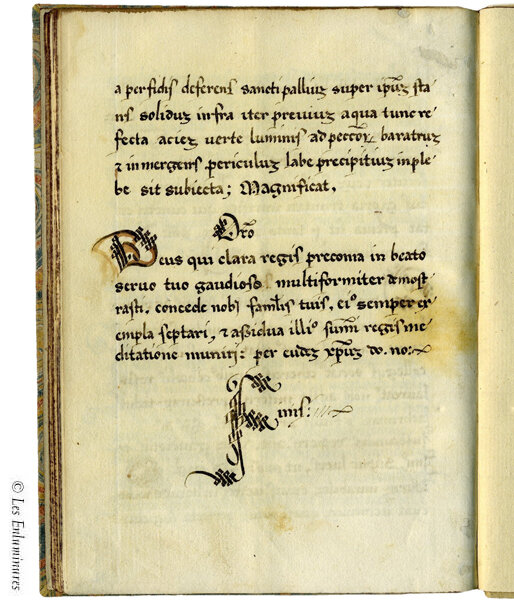 a perfidis deferens sancti pallium super ip̄ms sta
ns solidus infra iter previus aqua tunc re
fecta aciez verte luminis ad peccōꝝ baratrus
⁊ in mergens periculus labe precipitius in ple
be sit subiecta; Magnificat.
Or̄o
Deus qui clara regis preconia in beato
servo tuo gaudioso multiformiter demōst
rasti, concede nobis famlis tuis, eiꝰ semper ex
empla sectari, ⁊ assidua illiꝰ summi regis me
ditatione muniri: per eundez xp̄m do. no:
Finis:
© Les Enluminures